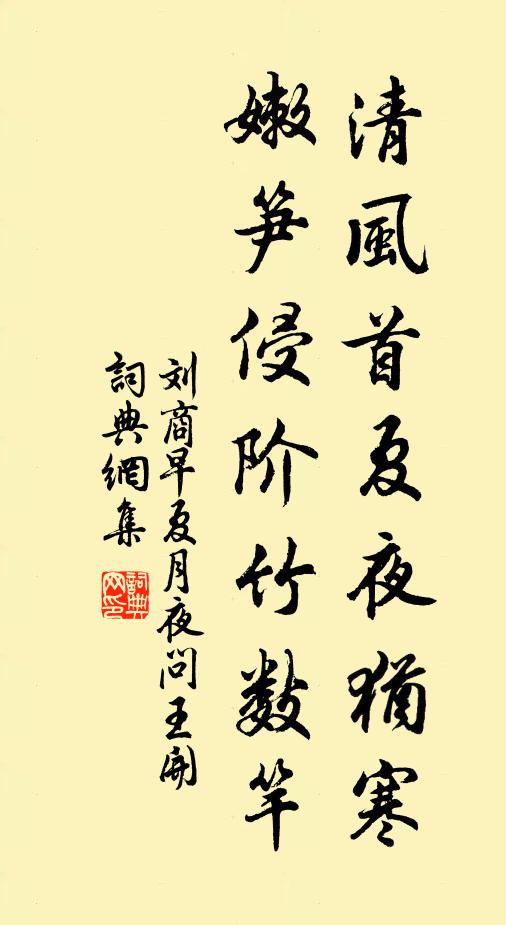 清風首夏夜猶寒
嫩笋侵阶竹数竿
刘商早夏月夜问王開
詞典網集
詞典网印